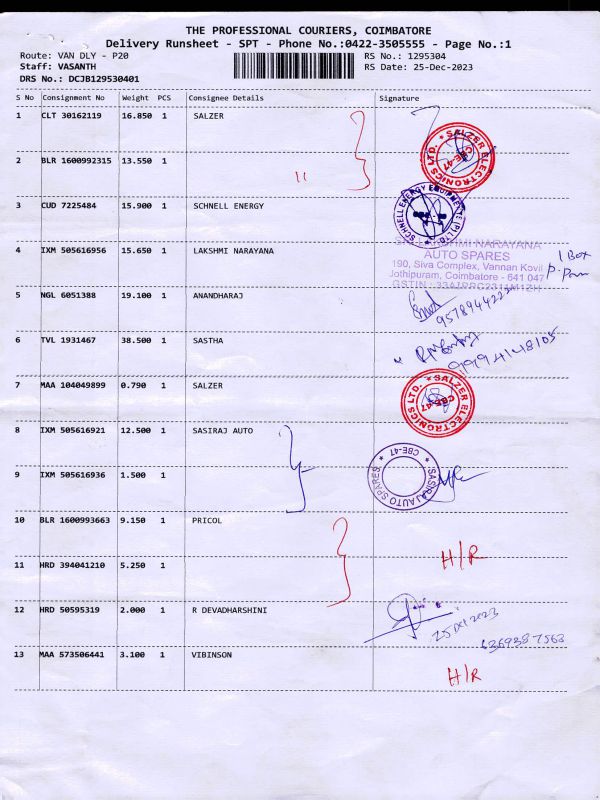 THE PROFESSIONAL COURIERS, COIMBATORE
Delivery Runsheet - SPT - Phone No.:0422-3505555 - Page No.:1
Route: VAN DLY - P20
RS No.: 1295304
Staff: VASANTH
RS Date: 25-Dec-2023
DRS No.: DCJB129530401
S No Consignment No Weight PCS Consignee Details Signature
1 CLT 30162119 16.850 1 SALZER
SALZER ELECTRONICS LTD. * CBE-47 *
2 BLR 1600992315 13.550 1 "
3 CUD 7225484 15.900 1 SCHNELL ENERGY
SCHNELL ENERGY EQUIPMENTS (P) LTD
4 IXM 505616956 15.650 1 LAKSHMI NARAYANA
SRI LAKSHMI NARAYANA
AUTO SPARES
190, Siva Complex, Vannan Kovil
Jothipuram, Coimbatore - 641 047
1 Box
5 NGL 6051388 19.100 1 ANANDHARAJ
6 TVL 1931467 38.500 1 SASTHA
99994148105
7 MAA 104049899 0.790 1 SALZER
SALZER ELECTRONICS LTD. * CBE-47 *
8 IXM 505616921 12.500 1 SASIRAJ AUTO
SASIRAJ AUTO SPARES * CBE-47 *
9 IXM 505616936 1.500 1
10 BLR 1600993663 9.150 1 PRICOL
H/R
11 HRD 394041210 5.250 1
12 HRD 50595319 2.000 1 R DEVADHARSHINI
25 Dec 2023
6369387563
13 MAA 573506441 3.100 1 VIBINSON
H/R